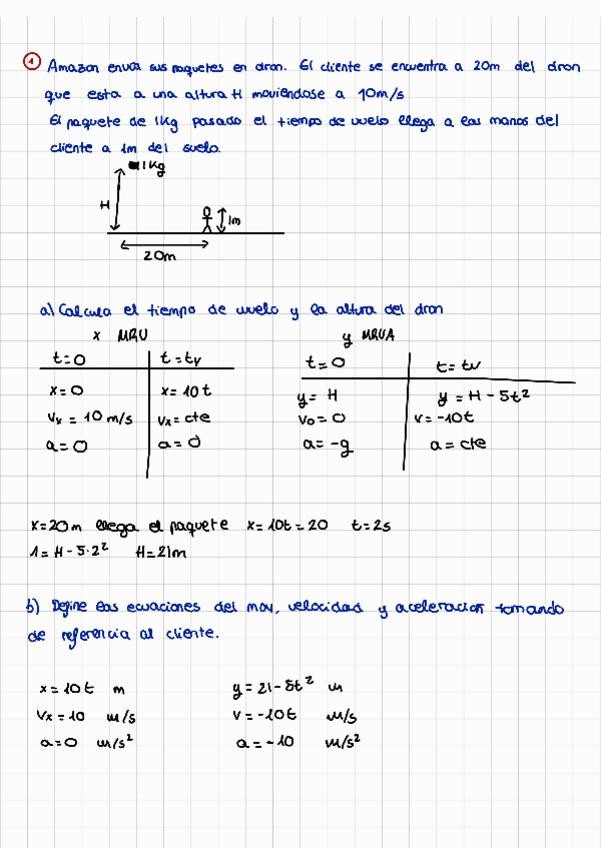 1 Amazon envia sus paquetes en dron. El cliente se encuentra a 20m del dron
que esta a una altura H moviéndose a 10m/s
El paquete de 1kg pasado el tiempo de vuelo llega a las manos del
cliente a 1m del suelo.
1Kg
H
1m
20m
a) Calcula el tiempo de vuelo y la altura del dron
x MRU
y MRUA
t=0 t=tv
t=0 t=tv
x=0 x=10t
y=H y=H-5t²
Vx=10 m/s Vx=cte
V0=0 V=-10t
a=0 a=0
a=-g a=cte
x=20m llega el paquete x=10t=20 t=2s
1=H-5·2² H=21m
b) Define las ecuaciones del mov, velocidad y aceleracion tomando
de referencia al cliente.
x=10t m y=21-5t² m
Vx=10 m/s V=-10t m/s
a=0 m/s² a=-10 m/s²